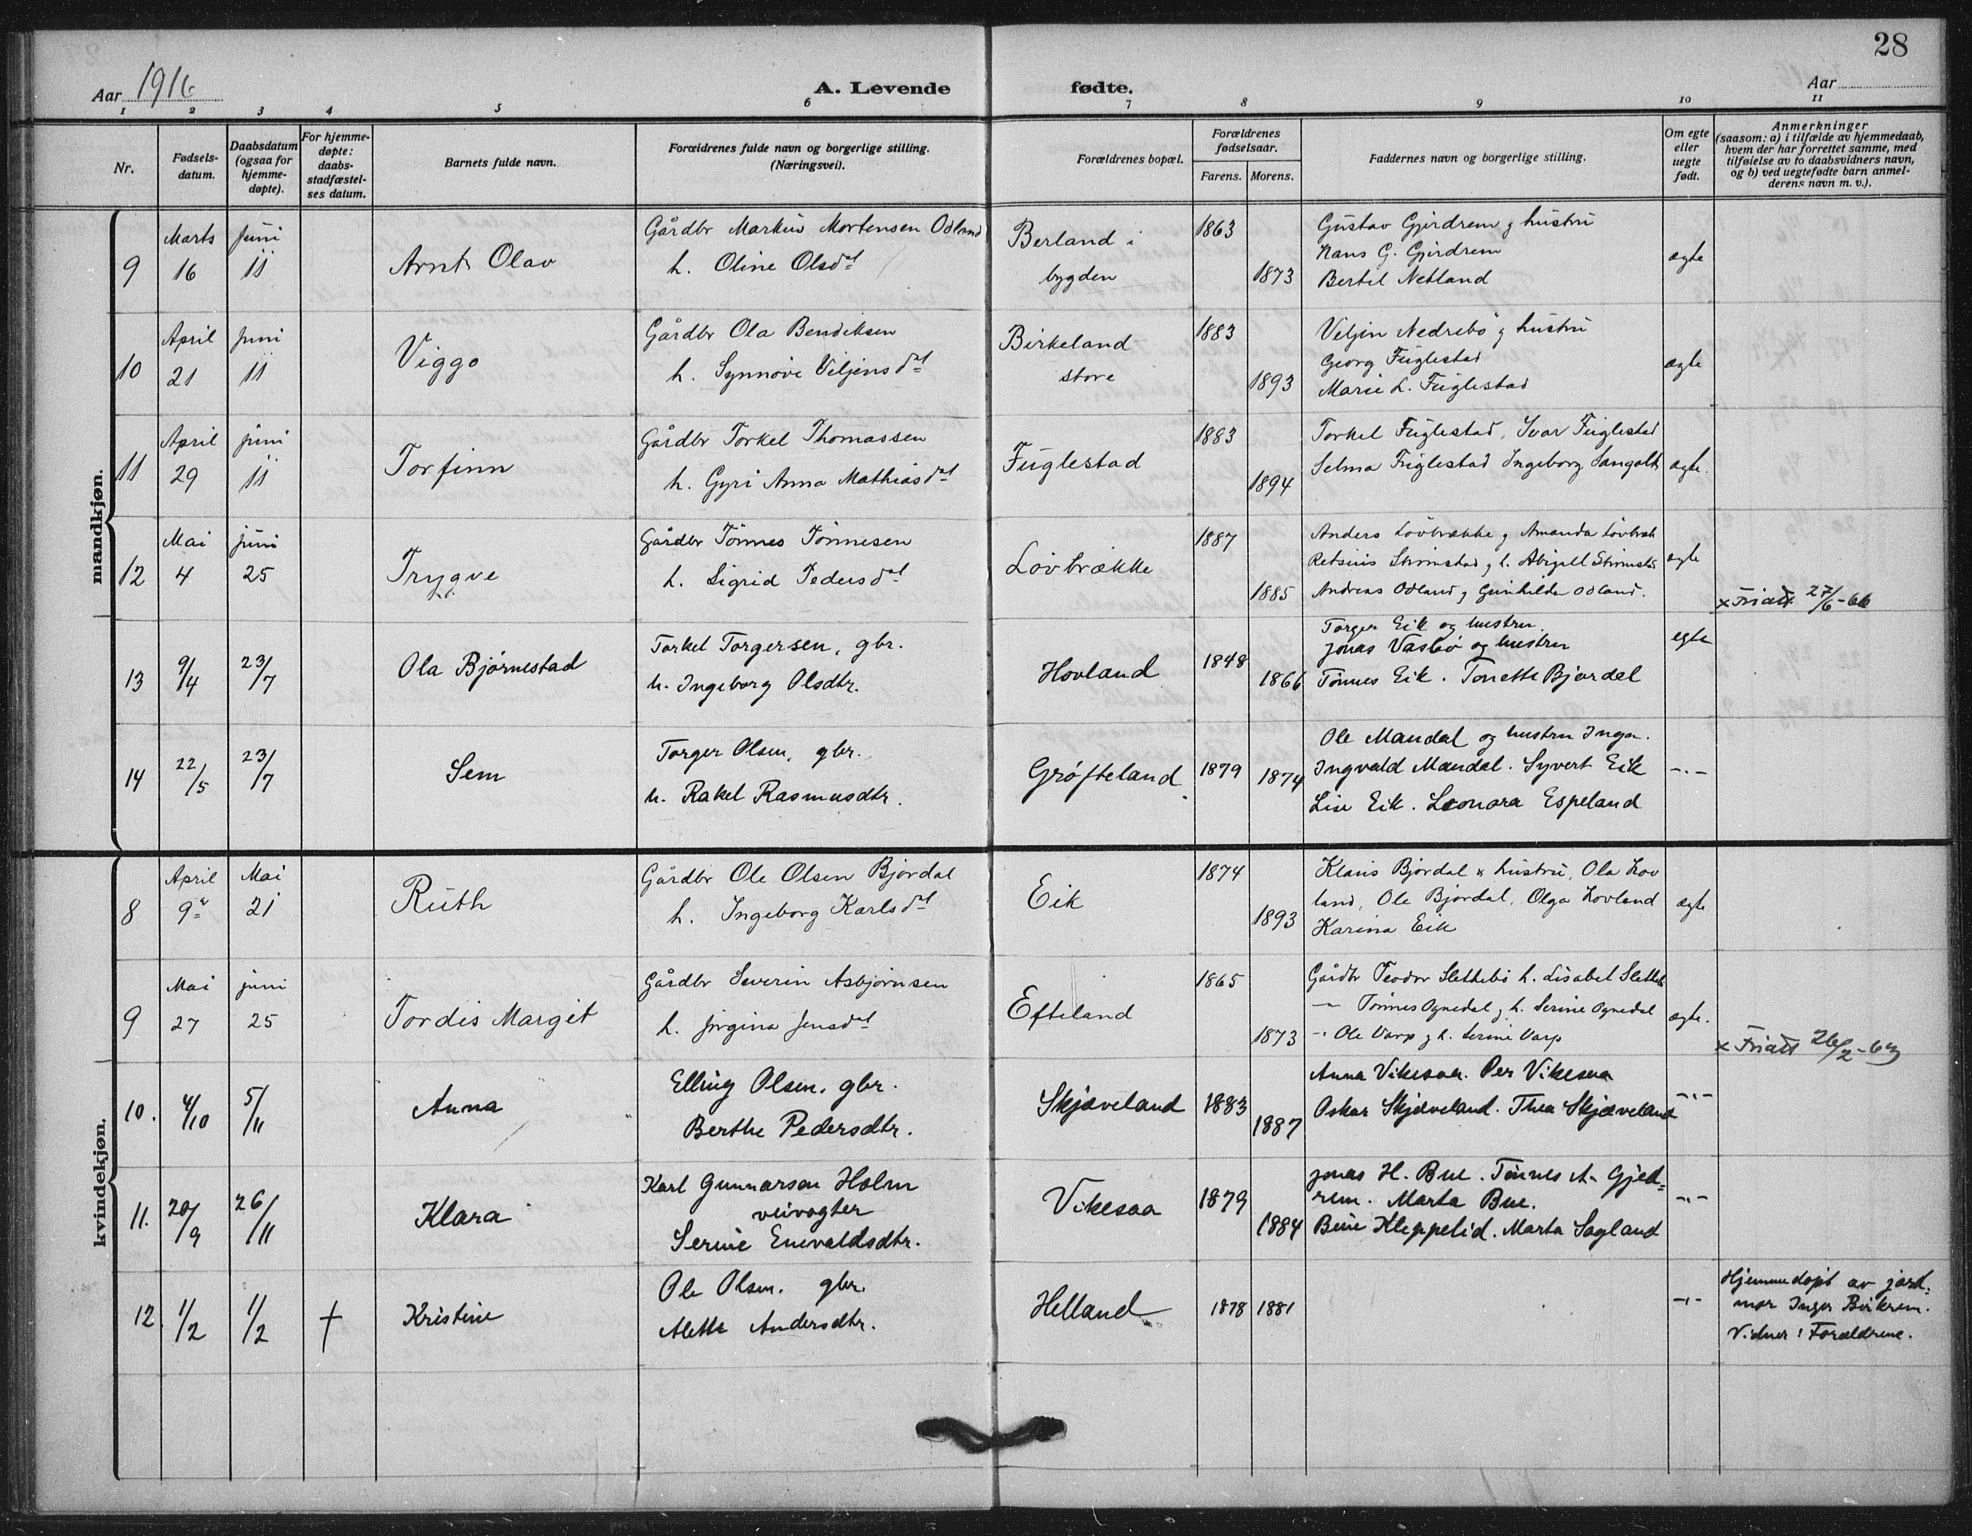 28
Aar 1916
A. Levende fødte.
Aar
1 2 3 4 5 6 7 8 9 10 11
Nr.
Fødsels-
datum.
Daabsdatum
(ogsaa for
hjemme-
døpte).
For hjemme-
døpte:
daabs-
stadfæstel-
ses datum.
Barnets fulde navn.
Forældrenes fulde navn og borgerlige stilling.
(Næringsvei).
Forældrenes bopæl.
Forældrenes
fødselsaar.
Farens. Morens.
Faddernes navn og borgerlige stilling.
Om egte
eller
uegte
født.
Anmerkninger
(saasom: a) i tilfælde av hjemmedaab,
hvem der har forrettet samme, med
tilføielse av to daabsvidners navn,
og b) ved uegtefødte barn anmel-
derens navn m. v.).
mandkjøn.
9
Marts
16
Juni
11
Arnt Olav
Gårdbr Markus Mortensen Odland
h. Oline Olsdat
Berland i
bygden
1863
1873
Gustav Gjerdrem g hustru
Hans G. Gjerdrem
Bertil Netland
ægte
10
April
21
Juni
11
Viggo
Gårdbr Ola Bendiksen
h. Synnøve Viljensdat
Birkeland
store
1883
1893
Veljin Nedrebø g hustru
Georg Fuglestad
Marie L. Fuglestad
ægte
11
April
29
Juni
11
Torfinn
Gårdbr Torkel Thomassen
h. Gyri Anna Mathiasdat
Fuglestad
1883
1894
Torkel Fuglestad, Ivar Fuglestad
Selma Fuglestad Ingeborg
ægte.
12
Mai
4
Juni
25
Trygve
Gårdbr Tønnes Tønnesen
h. Sigrid Pedersdat
Løvbrække
1887
1885
Anders Løvbrække g Amanda Løvbræk
g h. Abigell
Andreas Odland g Gunhilda Odland.
ægte
x Friatt 27/6-66
13
9/4
23/7
Ola Bjørnestad
Torkel Torgersen, gbr.
h. Ingeborg Olsdtr.
Hovland
1848
1866
Torger Eik og hustru.
Jonas Vasbø og hustru
Tønnes Eik. Tonette Bjordal
egte
14
22/5
23/7
Sem
Torger Olsen, gbr.
h. Rakel Rasmusdtr.
Grøfteland
1879
1874
Ole Mandal og hustru Inga.
Ingvald Mandal. Syvert Eik
Lise Eik. Leonora Espeland
-"-
kvindekjøn.
8
April
9
Mai
21
Ruth
Gårdbr Ole Olsen Bjordal
h. Ingeborg Karlsdat
Eik
1874
1893
Klaus Bjordal & hustru, Ola Lov
land, Ole Bjordal, Olga Lovland
Karina Eik
ægte
9
Mai
27
Juni
25
Tordis Margit
Gårdbr Severin Asbjørnsen
h. Jørgina Jensdat
Efteland
1865
1873
Gårdbr Teodor Slettebø h. Lisabet Slettebø
-"- Tønnes Ognedal g h. Serine Ognedal
-"- Ole Varp g h. Serine Varp
ægte.
x Friatt 26/2-63
10.
4/10
5/11
Anna
Elling Olsen, gbr.
Berthe Pedersdtr.
Skjæveland
1883
1887
Anna Vikesaa. Per Vikesaa
Oskar Skjæveland. Thea Skjæveland
-"-
11.
20/9
26/11
Klara
Karl Gunnarsen Holm
veivogter
Serine Enevaldsdtr.
Vikesaa
1879
1884
Jonas H. Bue. Tønnes A. Gjed=
rem. Marta Bue.
Bine Kleppelid. Marta Sagland
-"-
12
1/2
1/2
†
Kristine
Ole Olsen, gbr.
Alette Andersdtr.
Helland
1878
1881
-"-
Hjemmedøpt av jord-
mor Inger Birkrem.
Vidner: Forældrene.